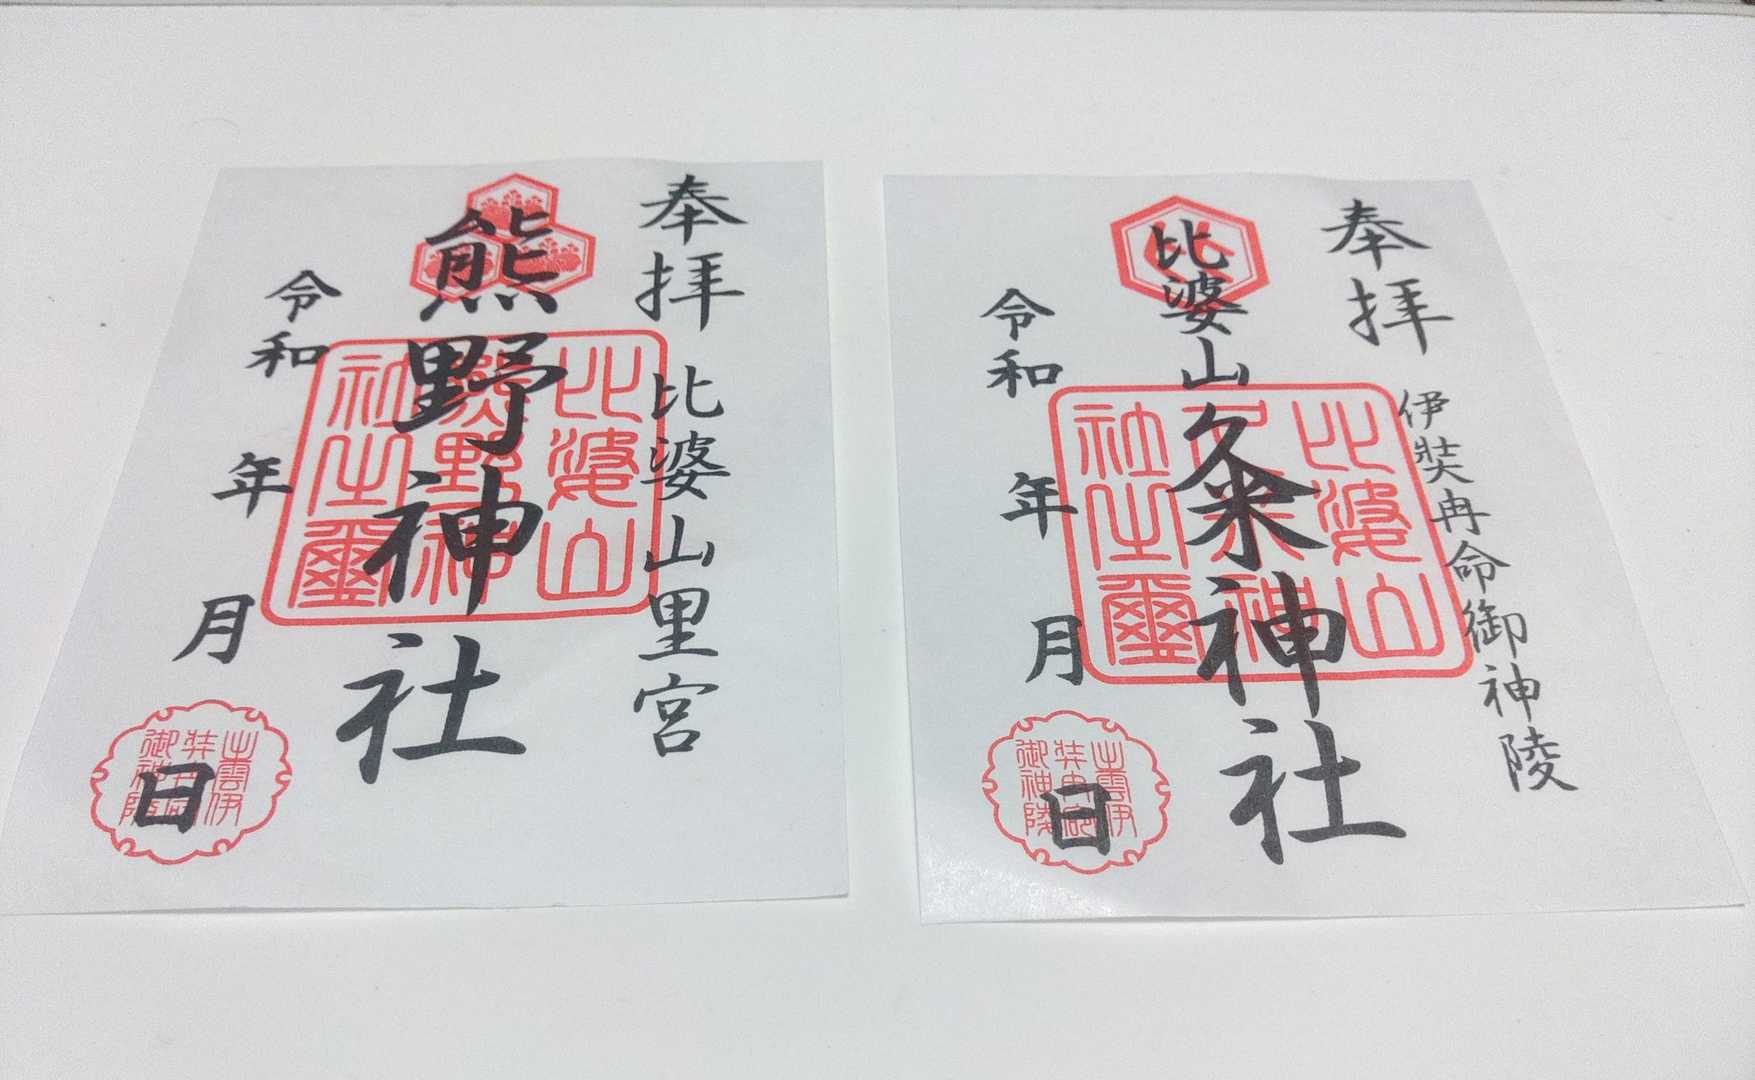 奉拝
比婆山里宮
熊野神社
令和 年 月 日
比婆山
熊野神
社之璽
出雲伊
御神陵
奉拝
伊奘冉命御神陵
比婆山久米神社
令和 年 月 日
比婆山
久米神
社之璽
出雲伊
御神陵